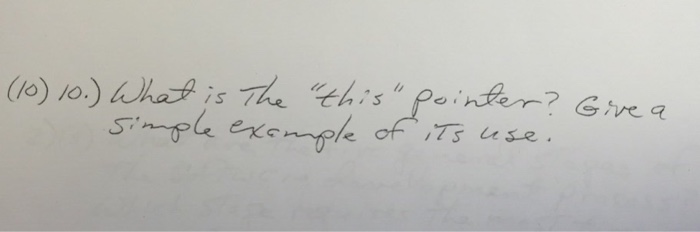 (10) 10.) What is The "this" pointer? Give a
simple example of iTs use.